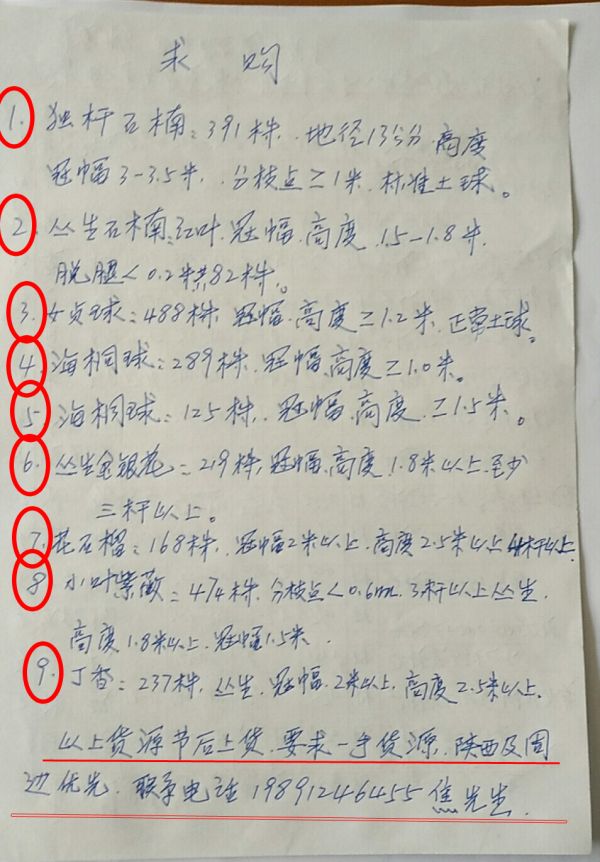 求 购
1. 独杆石楠：391株、地径13公分、高度
冠幅3-3.5米、分枝点≥1米、标准土球。
2. 丛生石楠：红叶、冠幅、高度、1.5-1.8米、
脱腿<0.2米共82株。
3. 女贞球：488株、冠幅、高度≥1.2米、正常土球。
4. 海桐球：289株、冠幅、高度≥1.0米。
5 海桐球：125株、冠幅、高度、≥1.5米。
6. 丛生金银花：219株、冠幅、高度、1.8米以上、至少
三杆以上。
7. 花石榴：168株、冠幅2米以上、高度2.5米以上4杆以上.
8 小叶紫薇：474株、分枝点<0.6m、3杆以上丛生、
高度1.8米以上、冠幅1.5米、
9. 丁香：237株、丛生、冠幅、2米以上、高度2.5米以上、
以上货源节后上货、要求一手货源、陕西及周
边优先、联系电话19891246455 焦先生.